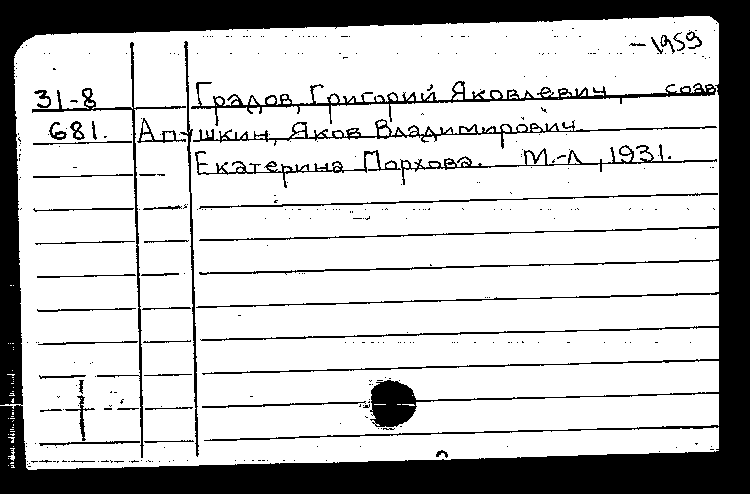 -1959
31-8 Градов, Григорий Яковлевич, соав
681. Апушкин, Яков Владимирович.
Екатерина Порхова. М.-Л, 1931.